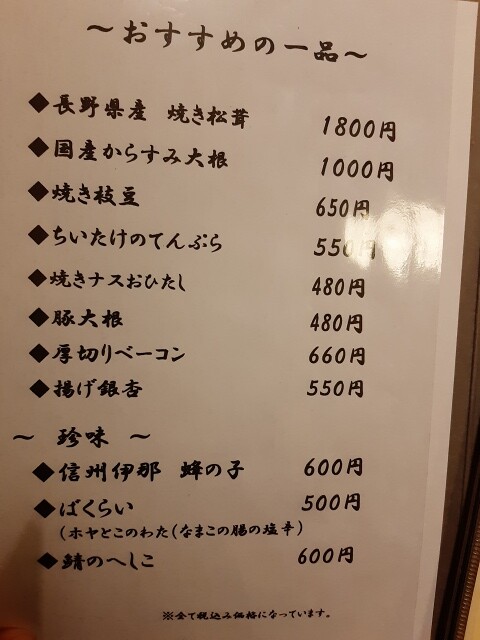 ～おすすめの一品～
◆長野県産 焼き松茸 1800円
◆国産からすみ大根 1000円
◆焼き枝豆 650円
◆ちいたけのてんぷら 550円
◆焼きナスおひたし 480円
◆豚大根 480円
◆厚切りベーコン 660円
◆揚げ銀杏 550円
～ 珍味 ～
◆信州伊那 蜂の子 600円
◆ばくらい 500円
(ホヤとこのわた(なまこの腸の塩辛)
◆鯖のへしこ 600円
※全て税込み価格になっています。